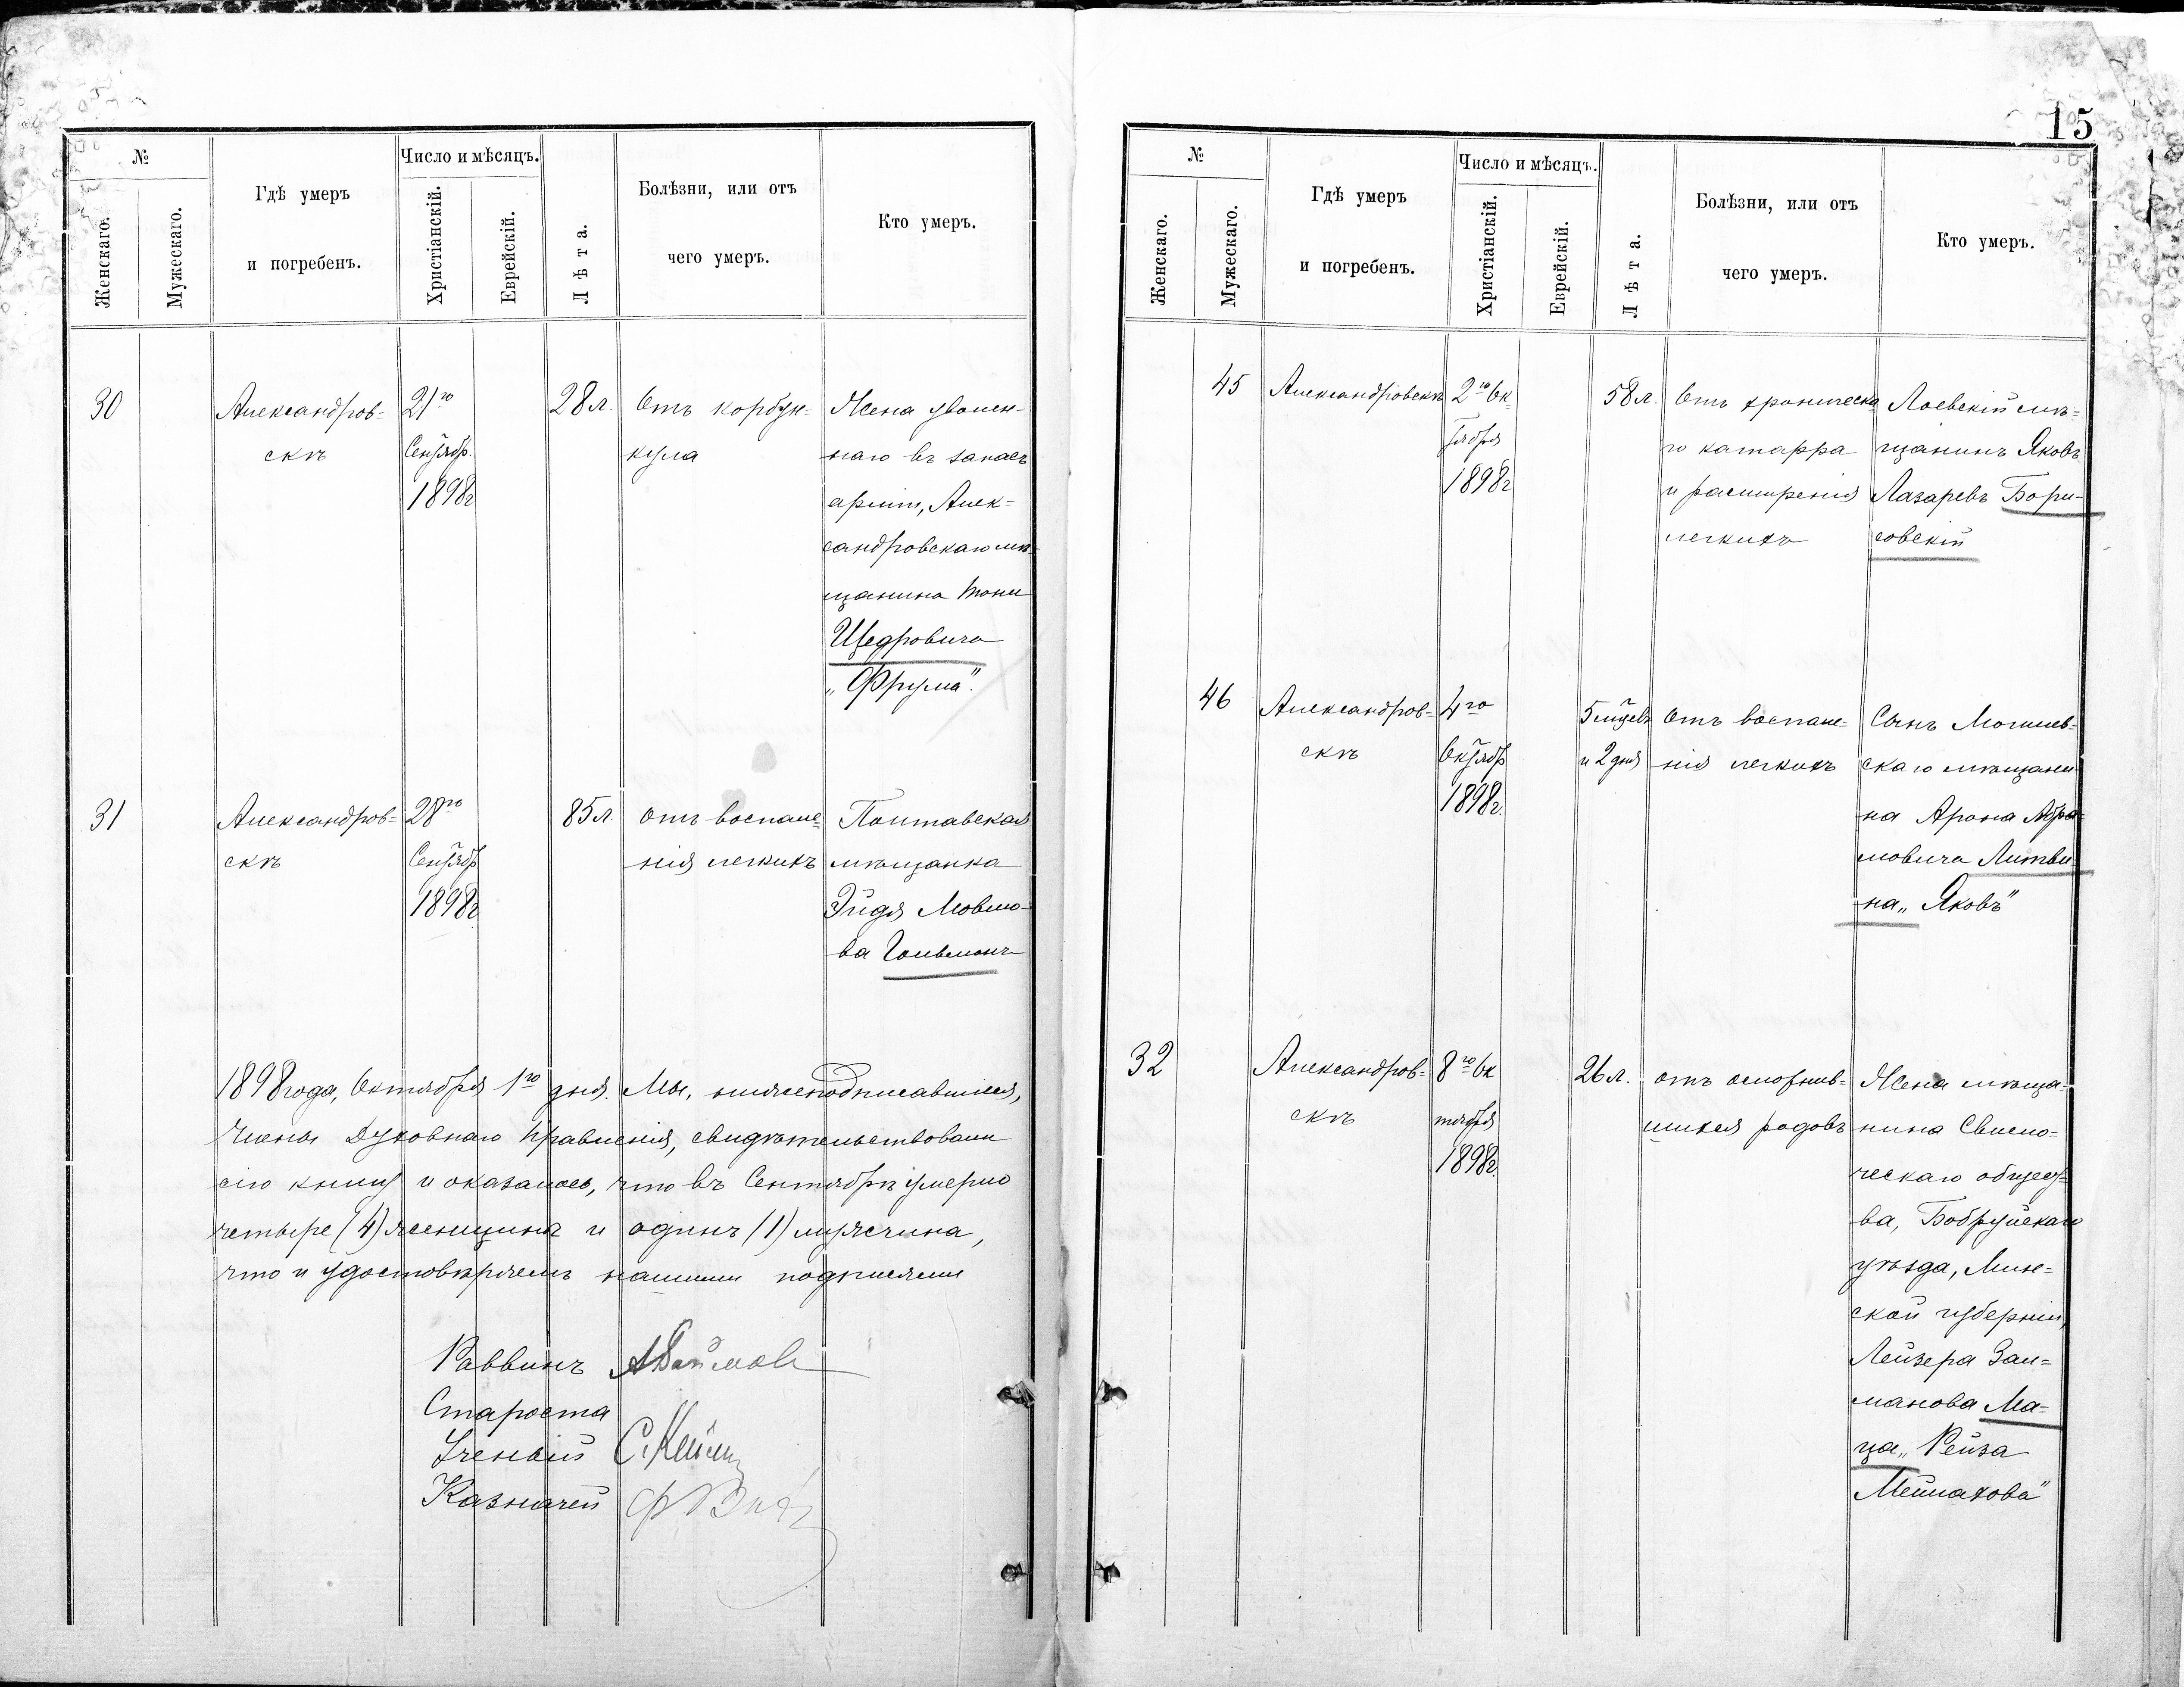 №
Женскаго.
Мужескаго.
Гдѣ умеръ
и погребенъ.
Число и мѣсяцъ.
Христіанскій.
Еврейскій.
Лѣта.
Болѣзни, или отъ
чего умеръ.
Кто умеръ.
30
Александров-
скъ
21го
Сентябр.
1898г
28 л.
Отъ корбун-
кула
Жена уволен-
наго въ запасъ
арміи, Алек-
сандровскаго мѣ-
щанина
Щедровича
„Фрума".
31
Александров-
скъ
28го
Сентябр
1898г
85 л.
отъ воспале-
нія легкихъ
Полтавская
мѣщанка
Эйдя Мовшо-
ва Гольманъ
1898 года, Октября 1го дня. Мы, нижеподписавшіеся,
Члены Духовнаго Правленія, свидѣтельствовали
сію книгу и оказалось, что въ Сентябрѣ умерло
четыре (4) женщины и одинъ (1) мужчина,
что и удостовѣряемъ нашими подписями
Раввинъ
Староста
Ученый
Казначей
15
№
Женскаго.
Мужескаго.
Гдѣ умеръ
и погребенъ.
Число и мѣсяцъ.
Христіанскій.
Еврейскій.
Лѣта.
Болѣзни, или отъ
чего умеръ.
Кто умеръ.
45
Александровскъ
2го Ок
тября
1898г
58 л.
Отъ хроническа
го катарра
и расширенія
легкихъ
Лоевскій мѣ-
щанинъ Яковъ
Лазаревъ Бори-
совскій
46
Александров-
скъ
4го
Октябр
1898г.
5 мцевъ
и 2 дня
Отъ воспале-
нія легкихъ
Сынъ Могилев-
скаго мѣщани-
на Арона Абра-
мовича Литви-
на „Яковъ"
32
Александров-
скъ
8го Ок
тября
1898г.
26 л.
отъ осложнив-
шихся родовъ
Жена мѣща-
нина Свисло-
ческаго общест-
ва, Бобруйскаго
уѣзда, Мин-
ской губерніи,
Лейзера Зал-
манова Ма-
ца „Рейза
Мейлахова"